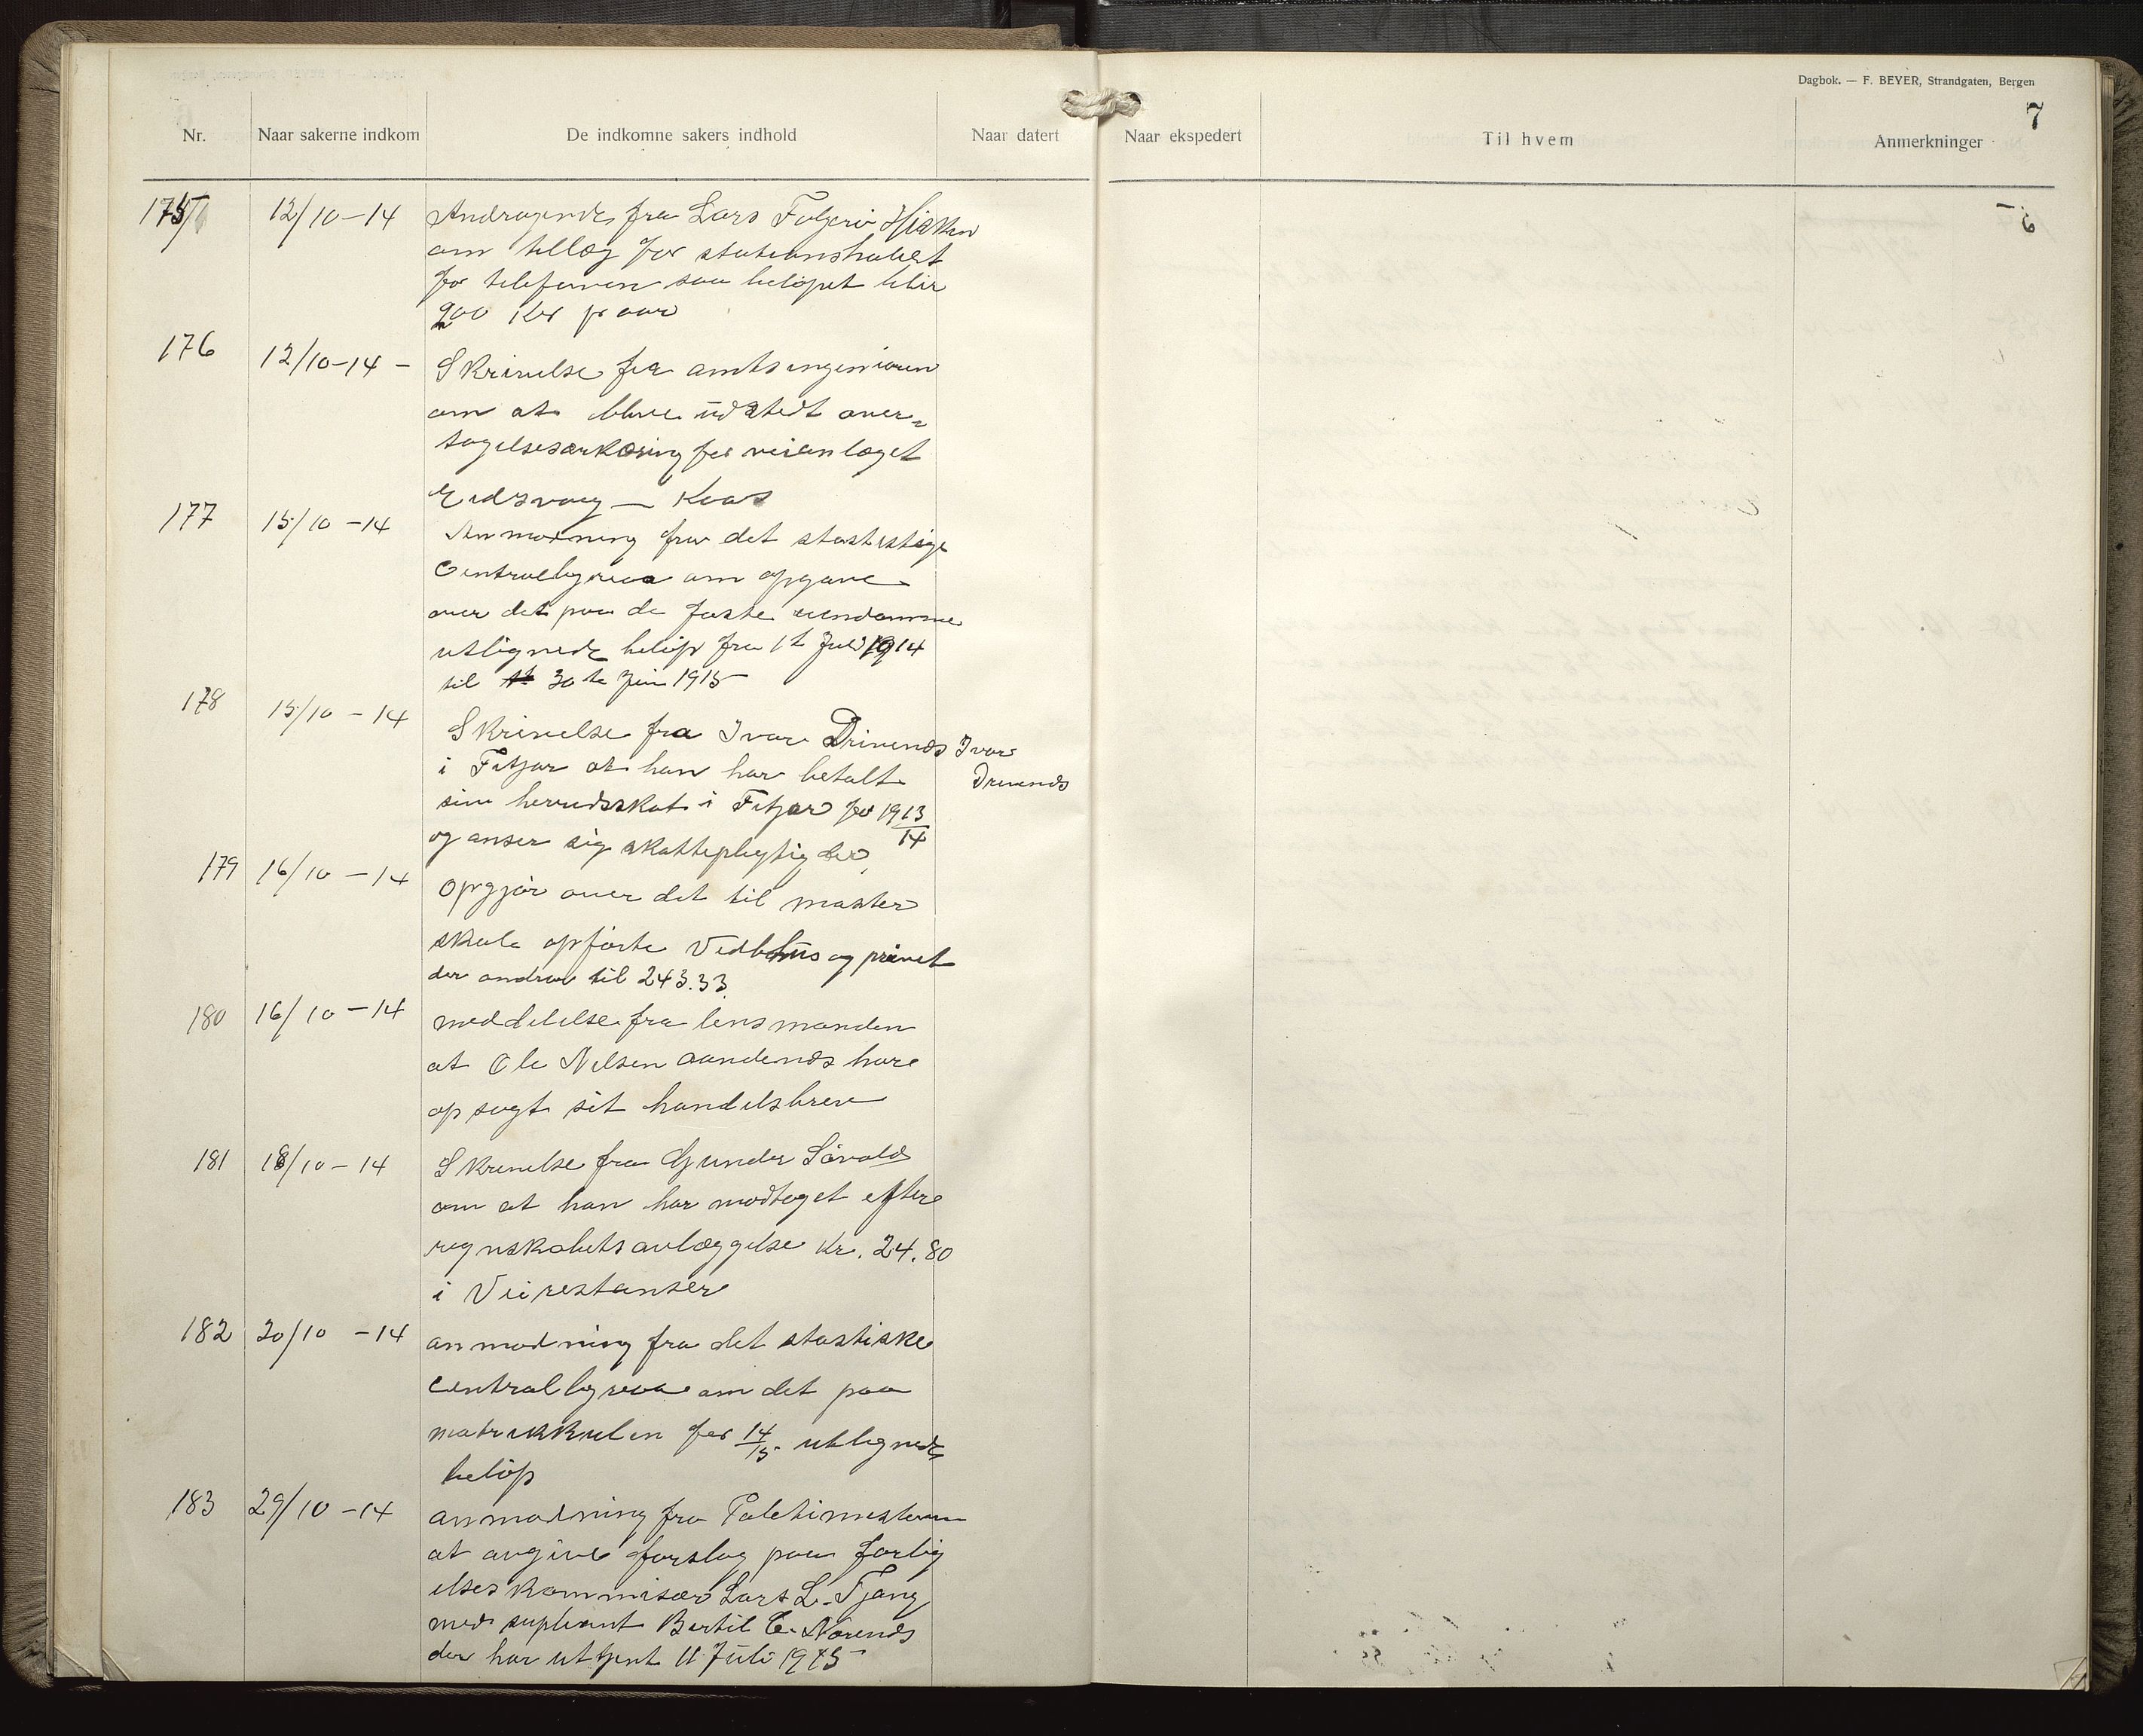 Dagbok. — F. BEYER, Strandgaten, Bergen
7
Nr. Naar sakerne indkom De indkomne sakers indhold Naar datert Naar ekspedert Til hvem Anmerkninger
175 12/10-14 Andragende fra Lars
om tillæg for stationsholdet
for telefonen saa beløpet blir
200 Kr pr aar
176 12/10-14 - Skrivelse fra amtsingeniøren
om at blive üdstedt over-
for veianlæget
Eidsvaag —
177 15/10 -14 Anmodning fra det
Centralbyraa om opgave
over det paa de faste eiendomme
utlignede beløp fra 1t Juli 1914
til 30te Juni 1915
178 15/10 - 14 Skrivelse fra Ivar Drivenes Ivar
i Fitjar at han har betalt Drivenes
sin herredsskat i Fitjar for 1913/14
og anser sig skattepligtig der
179 16/10 - 14 Opgjør over det til
skole opførte og privet
der andrar til 243.33
180 16/10 -14 meddelelse fra lensmanden
at Ole Nilsen have
opsagt sit handelsbrev
181 18/10 - 14 Skrivelse fra Gunder
om at han har modtaget efter
regnskabets avlæggelse Kr. 24.80
i Veirestanser
182 20/10 -14 anmodning fra det stastiske
Centralbyraa om det paa
matrikkulen for 14/15 utlignede
beløp
183 29/10 -14 anmodning fra Politimesteren
at avgive forslag paa forlig
elseskommisær Lars L. Tjong
med supleant Bertil
der har uttjent 11 Juli 1915